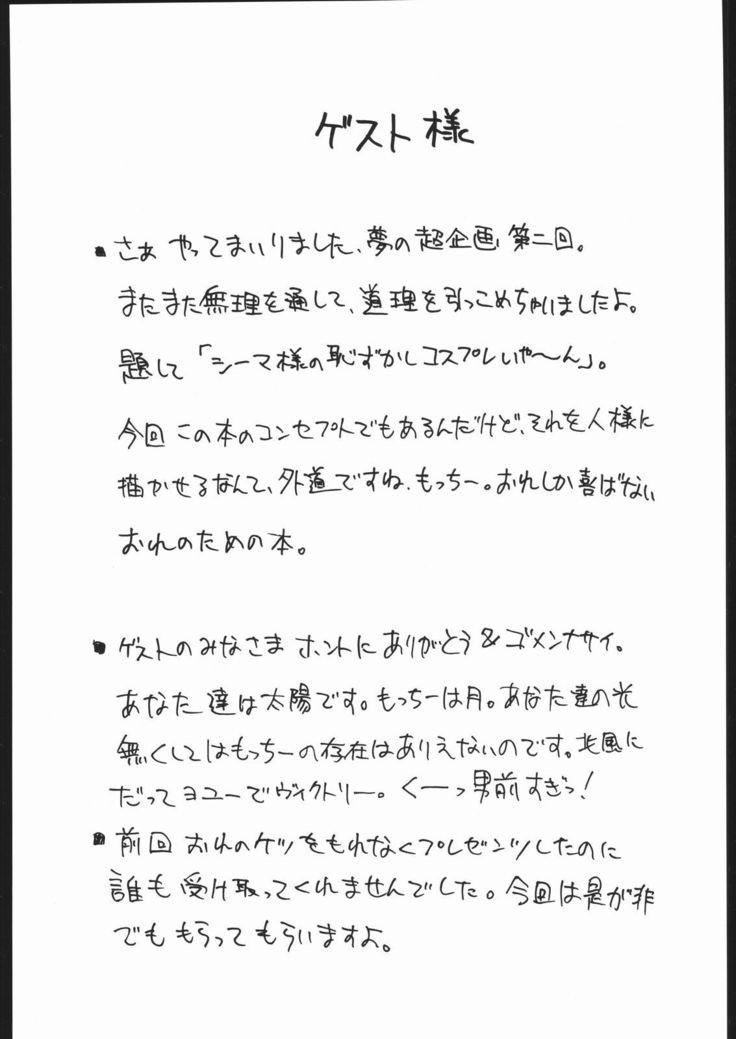 ゲスト様
・さぁ やってまいりました、夢の超企画 第二回。
またまた無理を通して、道理を引っこめちゃいましたよ。
題して「シーマ様の恥ずかしコスプレいや〜ん」。
今回 この本のコンセプトでもあるんだけど、それを人様に
描かせるなんて、外道ですね、もっちー。おれしか喜ばない
おれのための本。
・ゲストのみなさま ホントに ありがとう & ゴメンナサイ。
あなた達は太陽です。もっちーは月。あなた達の光
無くしてはもっちーの存在はありえないのです。北風に
だって ヨユーで ヴィクトリー。くーっ男前すぎっ!
・前回 おれのケツをもれなくプレゼンツしたのに
誰も 受け取ってくれませんでした。今回は是が非
でも もらって もらいますよ。